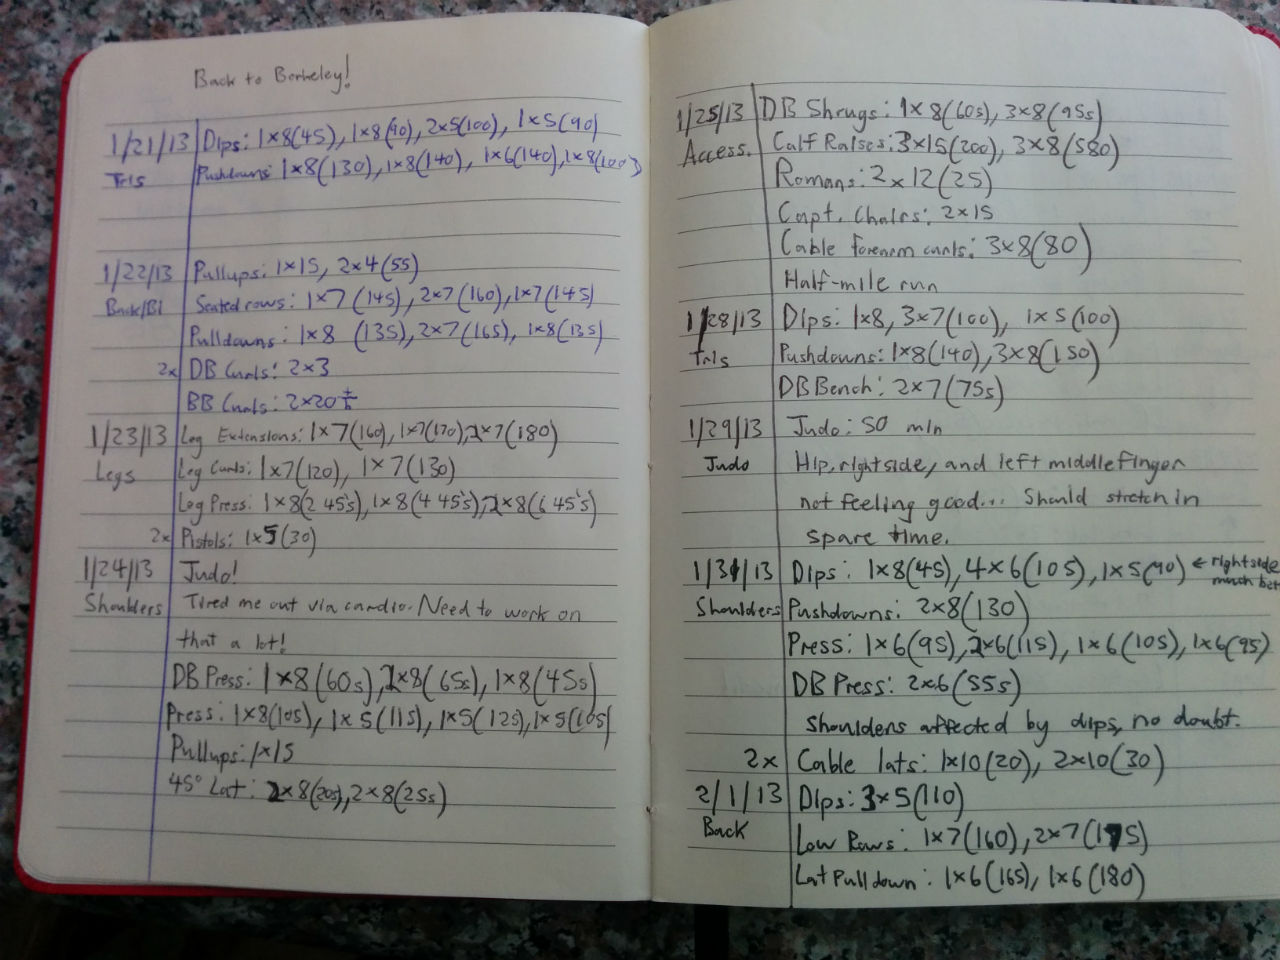 Back to Berkeley!
1/21/13 Dips: 1×8(45), 1×8(90), 2×5(100), 1×5(90)
Tris Pushdowns: 1×8(130), 1×8(140), 1×6(140), 1×8(100)
1/22/13 Pullups: 1×15, 2×4(55)
Back/Bi Seated rows: 1×7(145), 2×7(160), 1×7(145)
Pulldowns: 1×8 (135), 2×7(165), 1×8(135)
2x DB Curls: 2×3
BB Curls: 2×20
1/23/13 Leg Extensions: 1×7(160), 1×7(170), 2×7(180)
Legs Leg Curls: 1×7(120), 1×7(130)
Leg Press: 1×8(2 45's), 1×8(4 45's), 2×8(6 45's)
2x Pistols: 1×5(30)
1/24/13 Judo!
Shoulders Tired me out via cardio. Need to work on
that a lot!
DB Press: 1×8(60s), 2×8(65s), 1×8(45s)
Press: 1×8(105), 1×5(115), 1×5(125), 1×5(105)
Pullups: 1×15
45° Lat: 2×8(20s), 2×8(25s)
1/25/13 DB Shrugs: 1×8(60s), 3×8(95s)
Access. Calf Raises: 3×15(200), 3×8(580)
Romans: 2×12(25)
Capt. Chairs: 2×15
Cable forearm curls: 3×8(80)
Half-mile run
1/28/13 Dips: 1×8, 3×7(100), 1×5(100)
Tris Pushdowns: 1×8(140), 3×8(150)
DB Bench: 2×7(75s)
1/29/13 Judo: 50 min
Judo Hip, right side, and left middle finger
not feeling good... Should stretch in
spare time.
1/31/13 Dips: 1×8(45), 4×6(105), 1×5(90) ← right side
much bet
Shoulders Pushdowns: 2×8(130)
Press: 1×6(95), 2×6(115), 1×6(105), 1×6(95)
DB Press: 2×6(55s)
Shoulders affected by dips, no doubt.
2x Cable lats: 1×10(20), 2×10(30)
2/1/13 Dips: 3×5(110)
Back Low Rows: 1×7(160), 2×7(175)
Lat Pulldown: 1×6(165), 1×6(180)